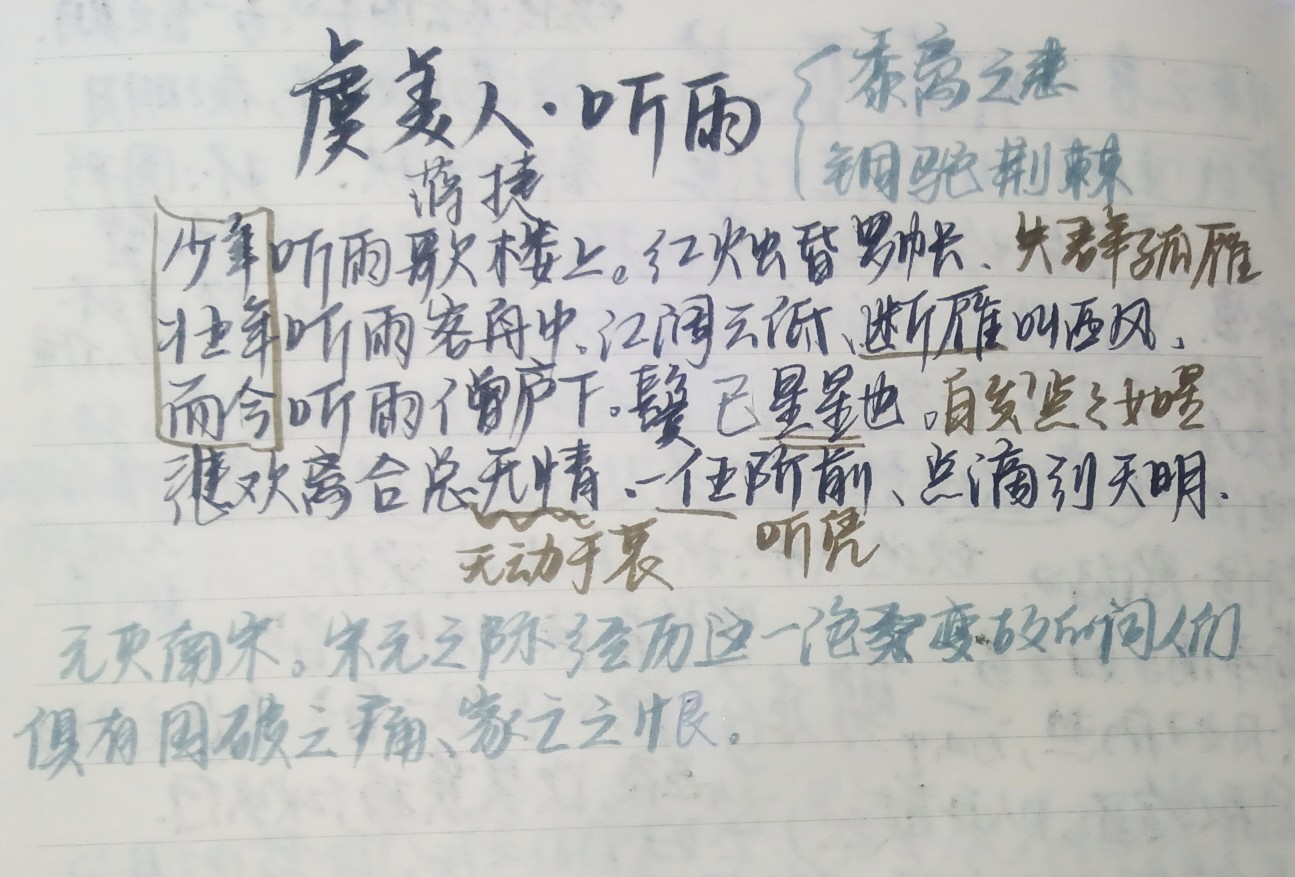 虞美人·听雨
黍离之悲
铜驼荆棘
蒋捷
少年听雨歌楼上。红烛昏罗帐、失群孤雁
壮年听雨客舟中、江阔云低、断雁叫西风、
而今听雨僧庐下。鬓已星星也。白发点点如星
悲欢离合总无情、一任阶前、点滴到天明.
无动于衷 听凭
元灭南宋。宋元之际经历这一沧桑变故的词人们
俱有国破之痛、家亡之恨。